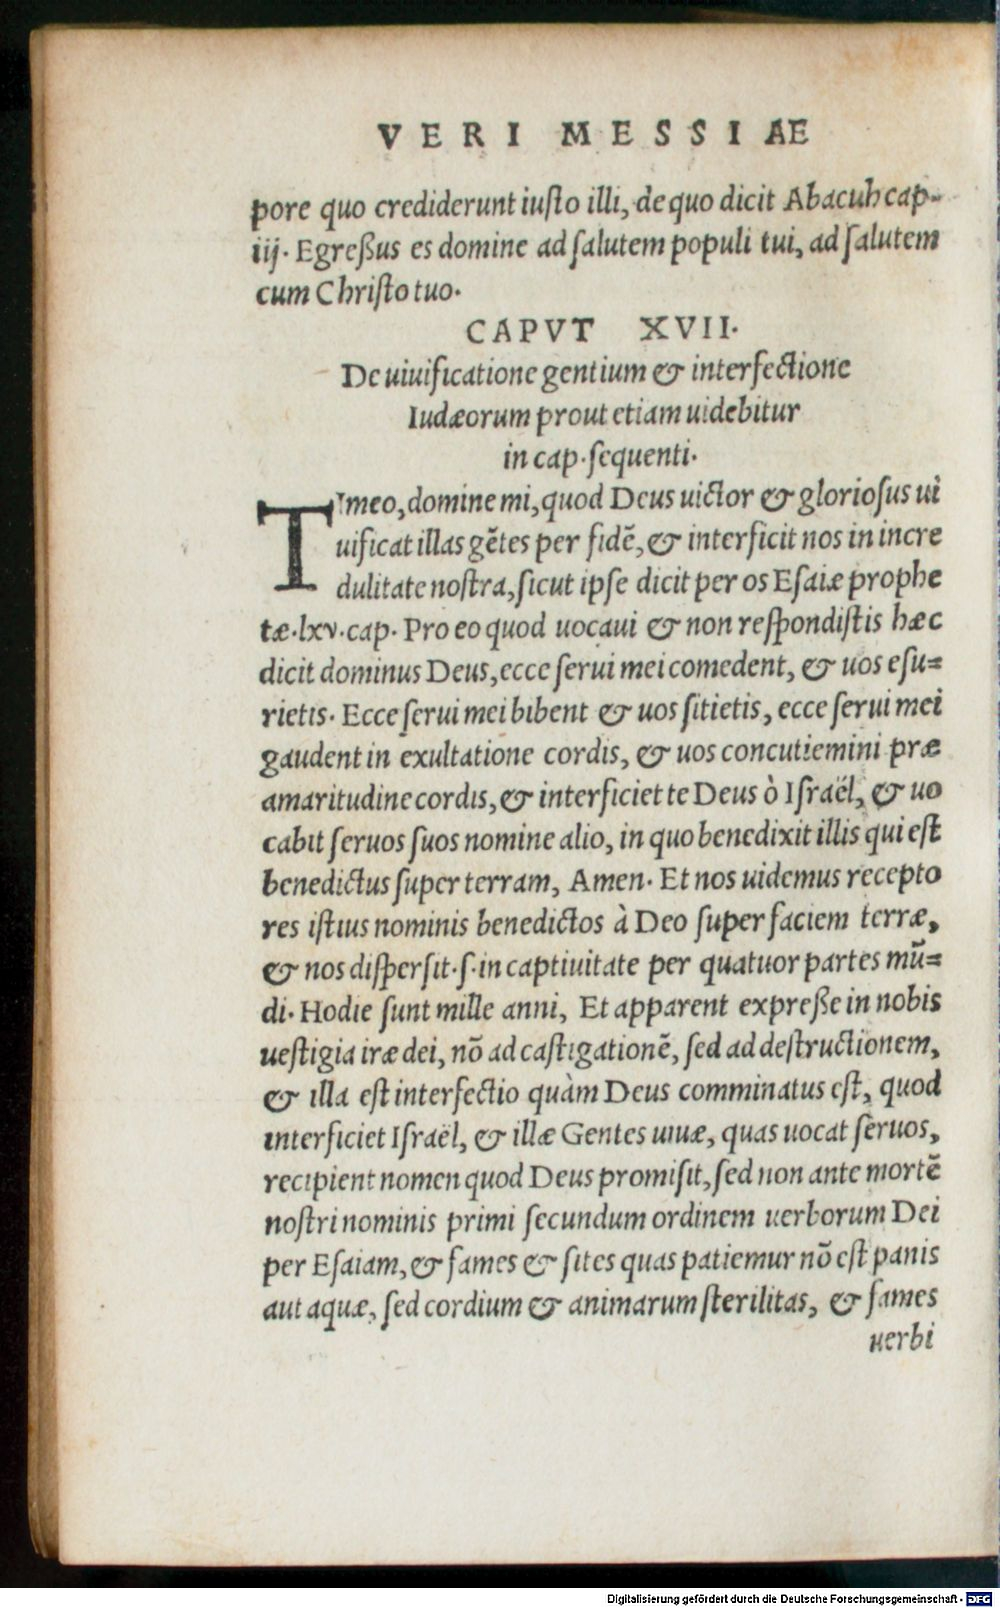 VERI MESSIAE
pore quo crediderunt iusto illi, de quo dicit Abacuh cap-
iij. Egreßus es domine ad salutem populi tui, ad salutem
cum Christo tuo.
CAPVT XVII.
De uiuificatione gentium & interfectione
Iudæorum prout etiam uidebitur
in cap. sequenti.
TImeo, domine mi, quod Deus uictor & gloriosus ui
uificat illas gẽtes per fidẽ, & interficit nos in incre
dulitate nostra, sicut ipse dicit per os Esaiæ prophe
tæ. lxv. cap. Pro eo quod uocaui & non respondistis hæc
dicit dominus Deus, ecce serui mei comedent, & uos esu=
rietis. Ecce serui mei bibent & uos sitietis, ecce serui mei
gaudent in exultatione cordis, & uos concutiemini præ
amaritudine cordis, & interficiet te Deus ò Israël, & uo
cabit seruos suos nomine alio, in quo benedixit illis qui est
benedictus super terram, Amen. Et nos uidemus recepto
res istius nominis benedictos à Deo super faciem terræ,
& nos dispersit. s. in captiuitate per quatuor partes mũ=
di. Hodie sunt mille anni, Et apparent expreße in nobis
uestigia iræ dei, nõ ad castigationẽ, sed ad destructionem,
& illa est interfectio quàm Deus comminatus est, quod
interficiet Israël, & illæ Gentes uiuæ, quas uocat seruos,
recipient nomen quod Deus promisit, sed non ante mortẽ
nostri nominis primi secundum ordinem uerborum Dei
per Esaiam, & fames & sites quas patiemur nõ est panis
aut aquæ, sed cordium & animarum sterilitas, & fames
uerbi
Digitalisierung gefördert durch die Deutsche Forschungsgemeinschaft - DFG